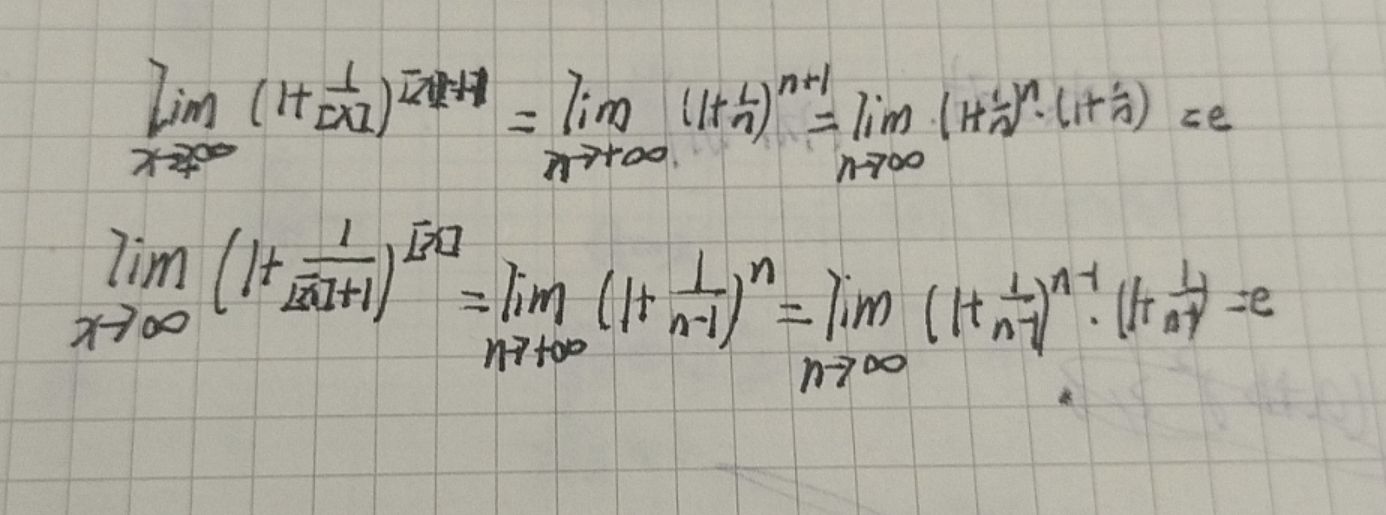 lim x→+∞ (1+1/[x])^([x]+1) = lim n→+∞ (1+1/n)^(n+1) = lim n→∞ (1+1/n)^n·(1+1/n) = e
lim x→∞ (1+1/([x]+1))^[x] = lim n→+∞ (1+1/(n-1))^n = lim n→∞ (1+1/(n-1))^(n-1)·(1+1/(n-1)) = e